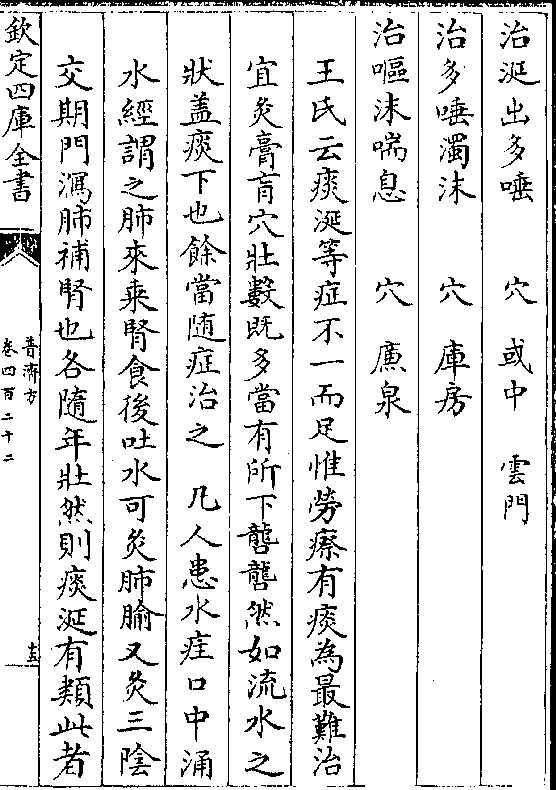 治涎出多唾　　穴　或中　雲門
治多唾濁沫　　穴　庫房
治嘔沫喘息　　穴　廉泉
王氏云痰涎等症不一而足惟勞瘵有痰為最難治
宜灸膏肓穴壯數既多當有所下礱礱然如流水之
狀盖痰下也餘當隨症治之　凡人患水疰口中涌
水經謂之肺來乘腎食後吐水可灸肺腧又灸三陰
交期門瀉肺補腎也各隨年壯然則痰涎有類此者
欽定四庫全書
普濟方
卷四百二十二